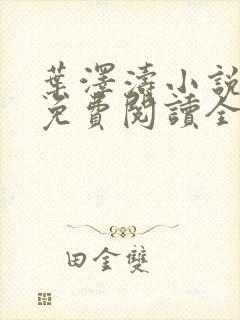 葉澤濤小說
免費閱讀全
田金雙